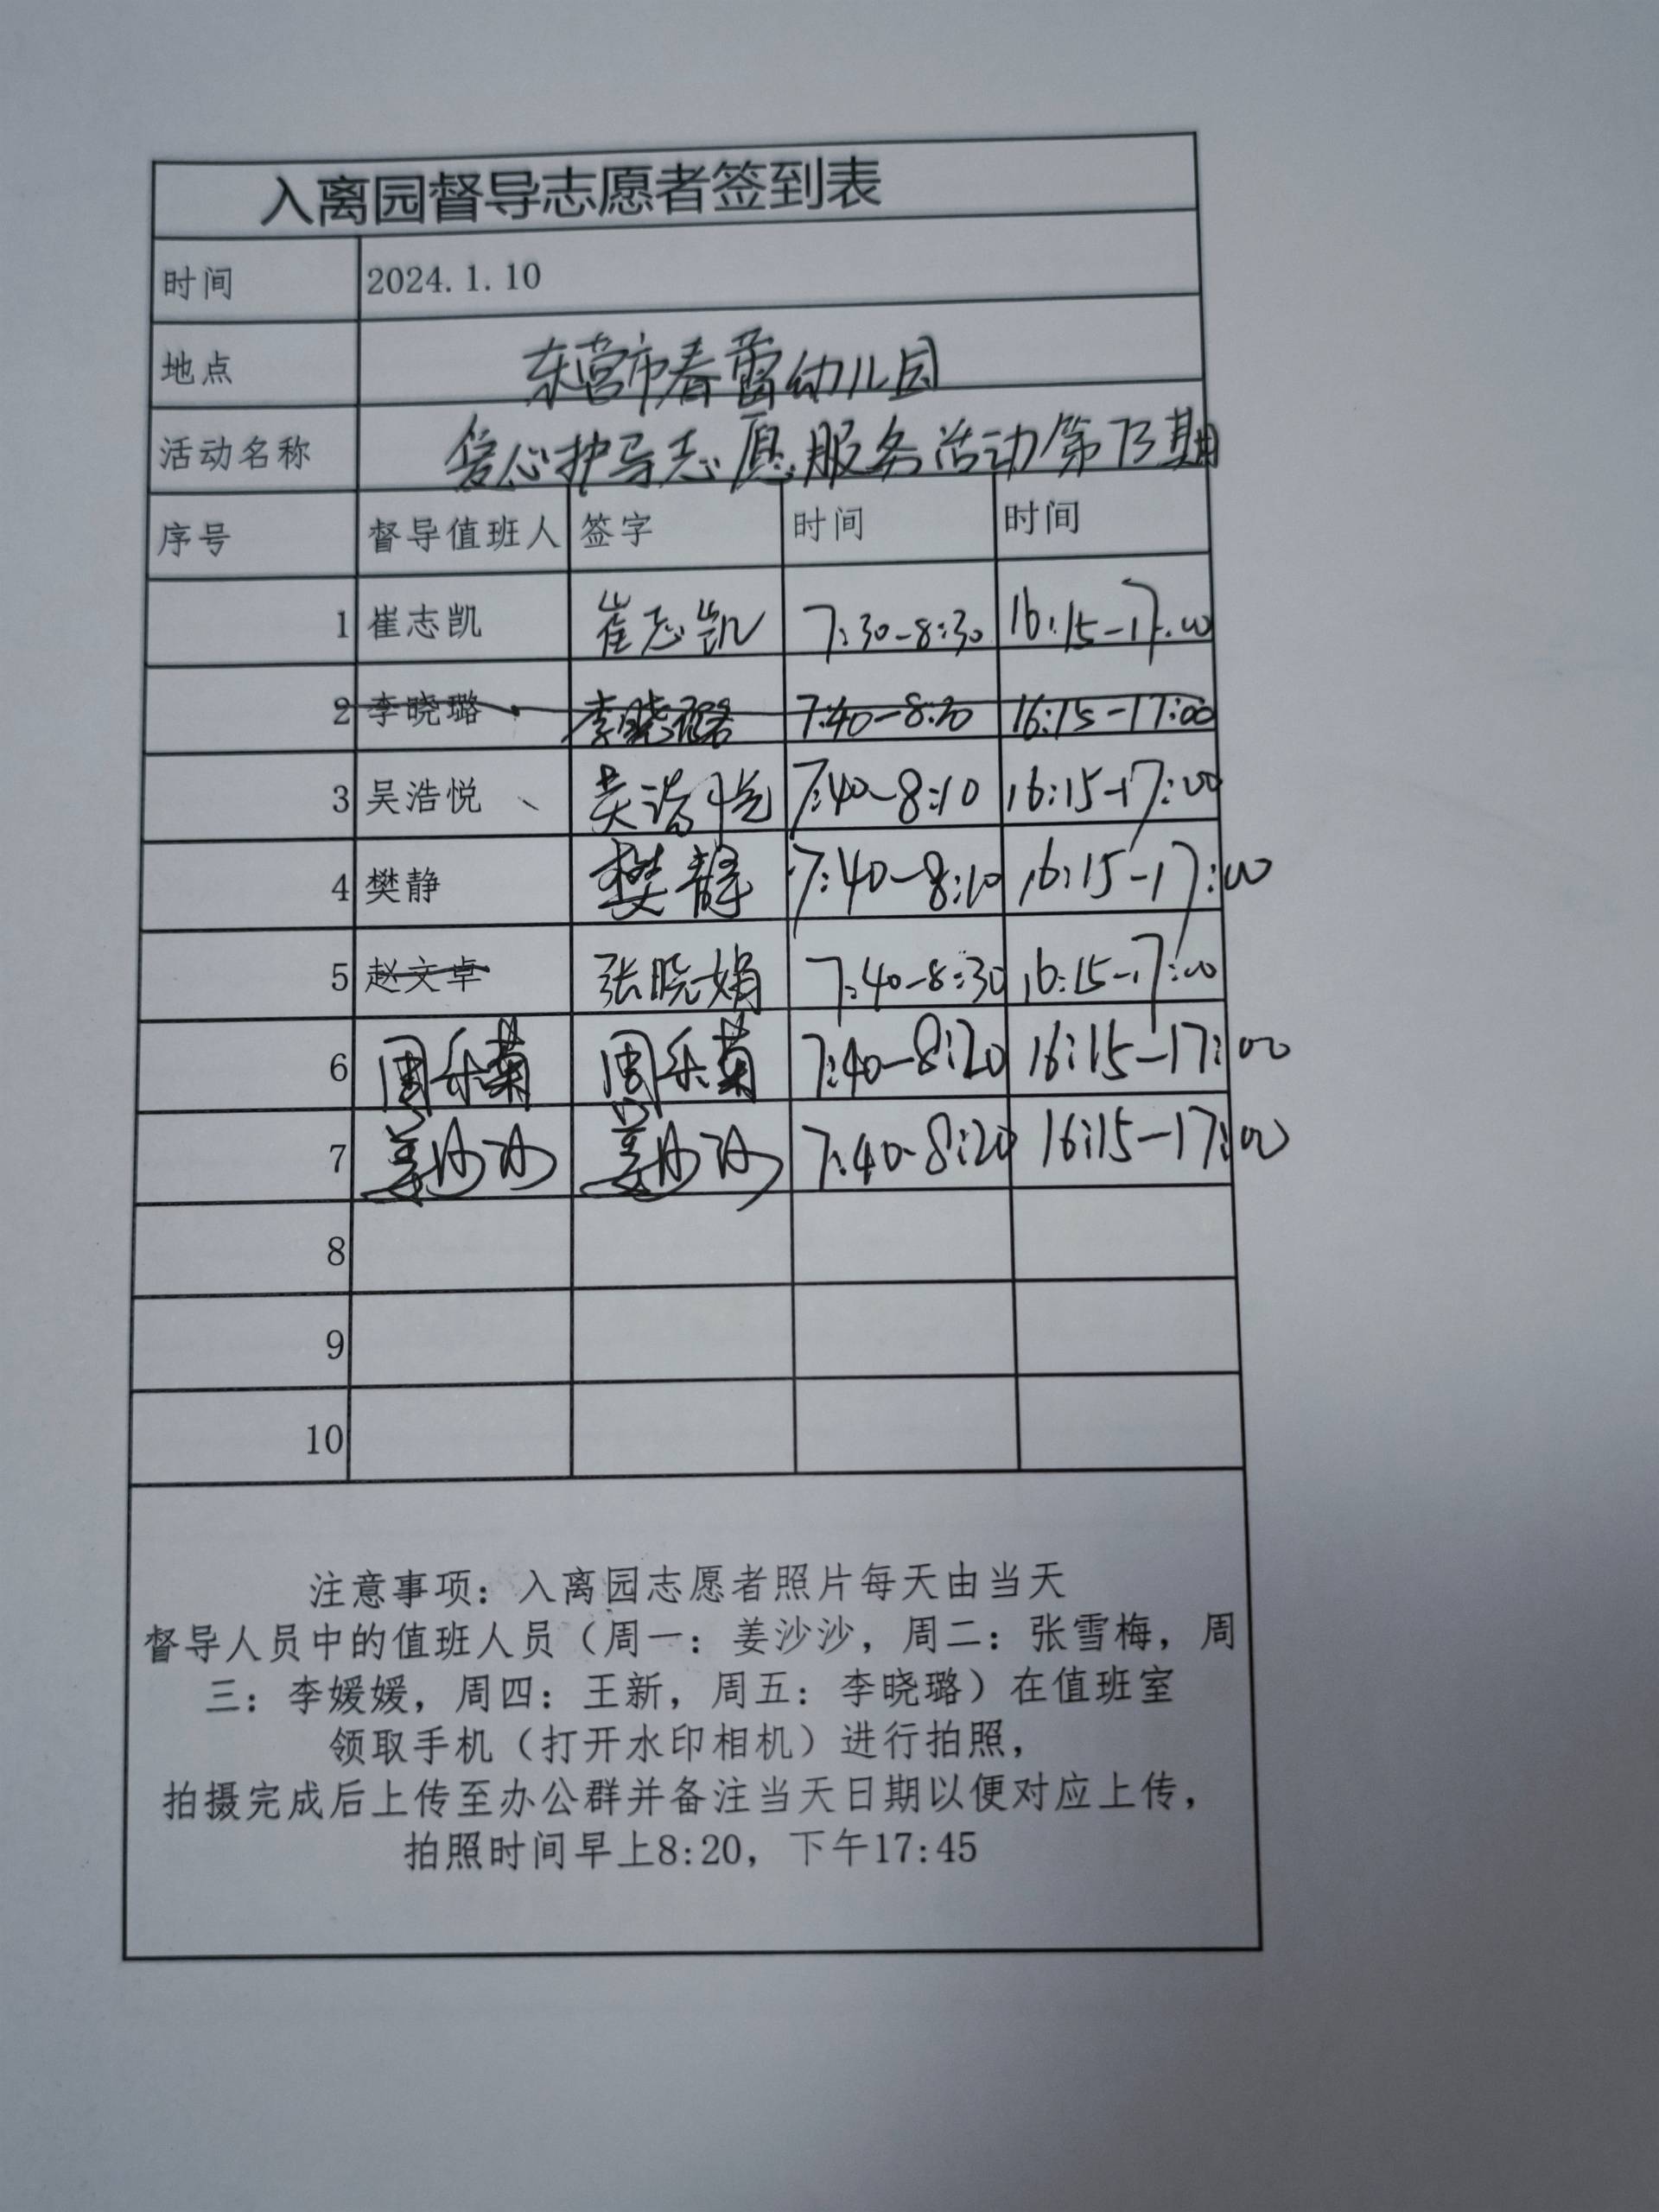 入离园督导志愿者签到表
时间 2024.1.10
地点 东营市春蕾幼儿园
活动名称 爱心护导志愿服务活动第73期
序号 督导值班人 签字 时间 时间
1 崔志凯 崔志凯 7:30-8:30 16:15-17:00
2 李晓璐 李晓璐 7:40-8:20 16:15-17:00
3 吴浩悦 吴浩悦 7:40-8:10 16:15-17:00
4 樊静 樊静 7:40-8:10 16:15-17:00
5 赵文卓 张晓娟 7:40-8:30 16:15-17:00
6 周乐菊 周乐菊 7:40-8:20 16:15-17:00
7 姜沙沙 姜沙沙 7:40-8:20 16:15-17:00
8
9
10
注意事项：入离园志愿者照片每天由当天
督导人员中的值班人员（周一：姜沙沙，周二：张雪梅，周
三：李媛媛，周四：王新，周五：李晓璐）在值班室
领取手机（打开水印相机）进行拍照，
拍摄完成后上传至办公群并备注当天日期以便对应上传，
拍照时间早上8:20，下午17:45